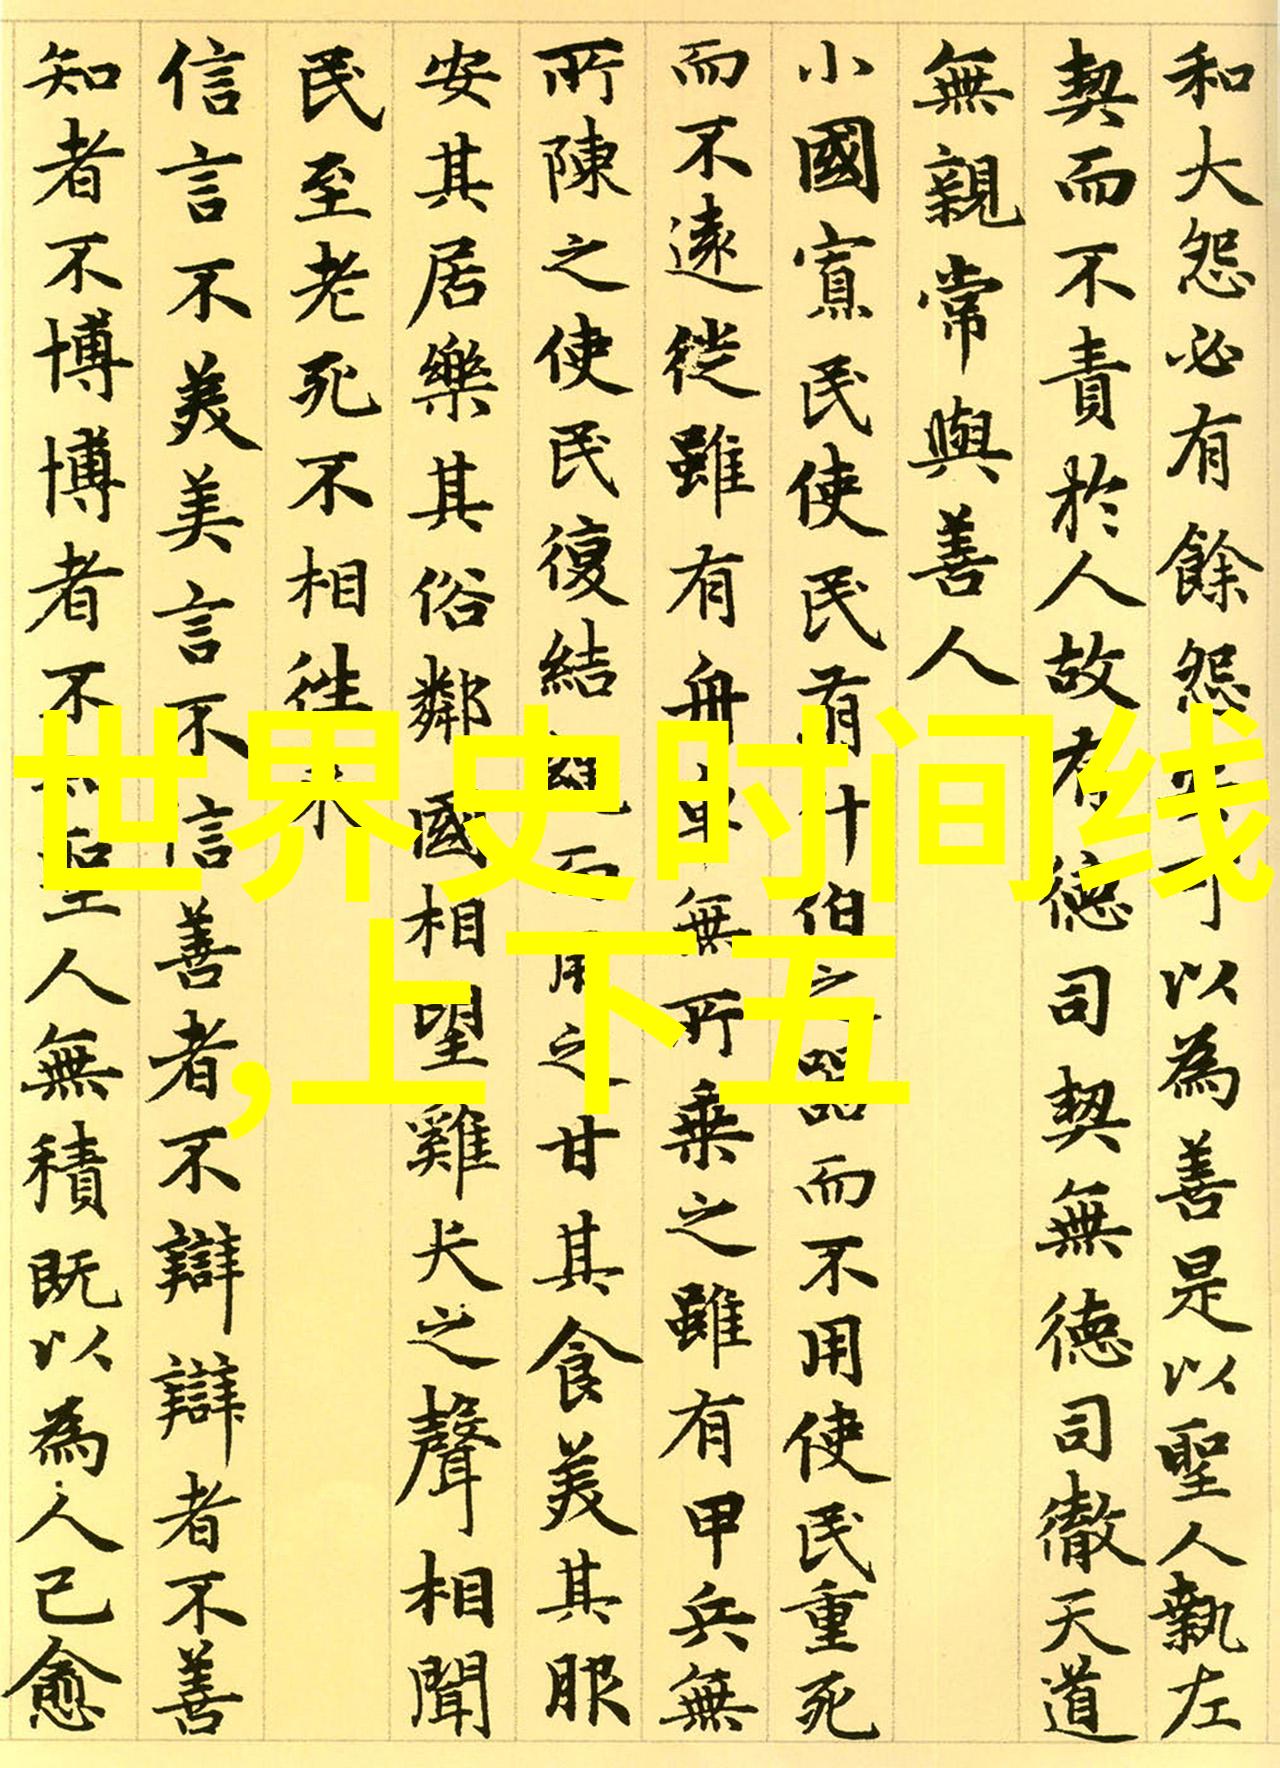 和大怨必有餘怨可以為善是以聖人執左
契而不責於人故有德司契無德司徹天道
無親常與善人
小國寡民使民有什伯之器而不用使民重死
而不遠徙雖有舟車無所乘之雖有甲兵無
所陳之使民復結繩而用之甘其食美其服
安其居樂其俗鄰國相望雞犬之聲相聞
民至老死不相往來
信言不美美言不信善者不辯辯者不善
知者不博博者不知聖人無積既以為人己愈
世界史时间线
,上下五